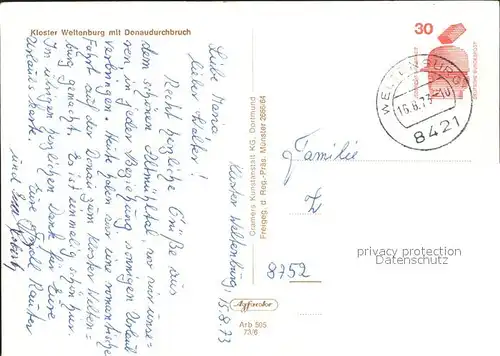 Kloster Weltenburg mit Donaudurchbruch
Kloster Weltenburg, 15.8.73
Liebe Maria,
lieber Walter!
Recht herzliche Grüße aus
dem schönen Altmühltal, wo wir unse-
ren in jeder Beziehung sonnigen Urlaub
verbringen. Heute haben wir eine romantische
Fahrt auf der Donau zum Kloster Welten=
burg gemacht. Es ist einmalig schön hier.
Im übrigen herzlichen Dank für Eure
Urlaubskarte. Eure
und
Cramers Kunstanstalt KG, Dortmund
Freigeg. d. Reg.-Präs. Münster 2866/64
Agfacolor
Arb 505
73/6
30
WELTENBURG
16.8.73-10
8421
Familie
Z
8752
privacy protection
AnsichtskartenCenter